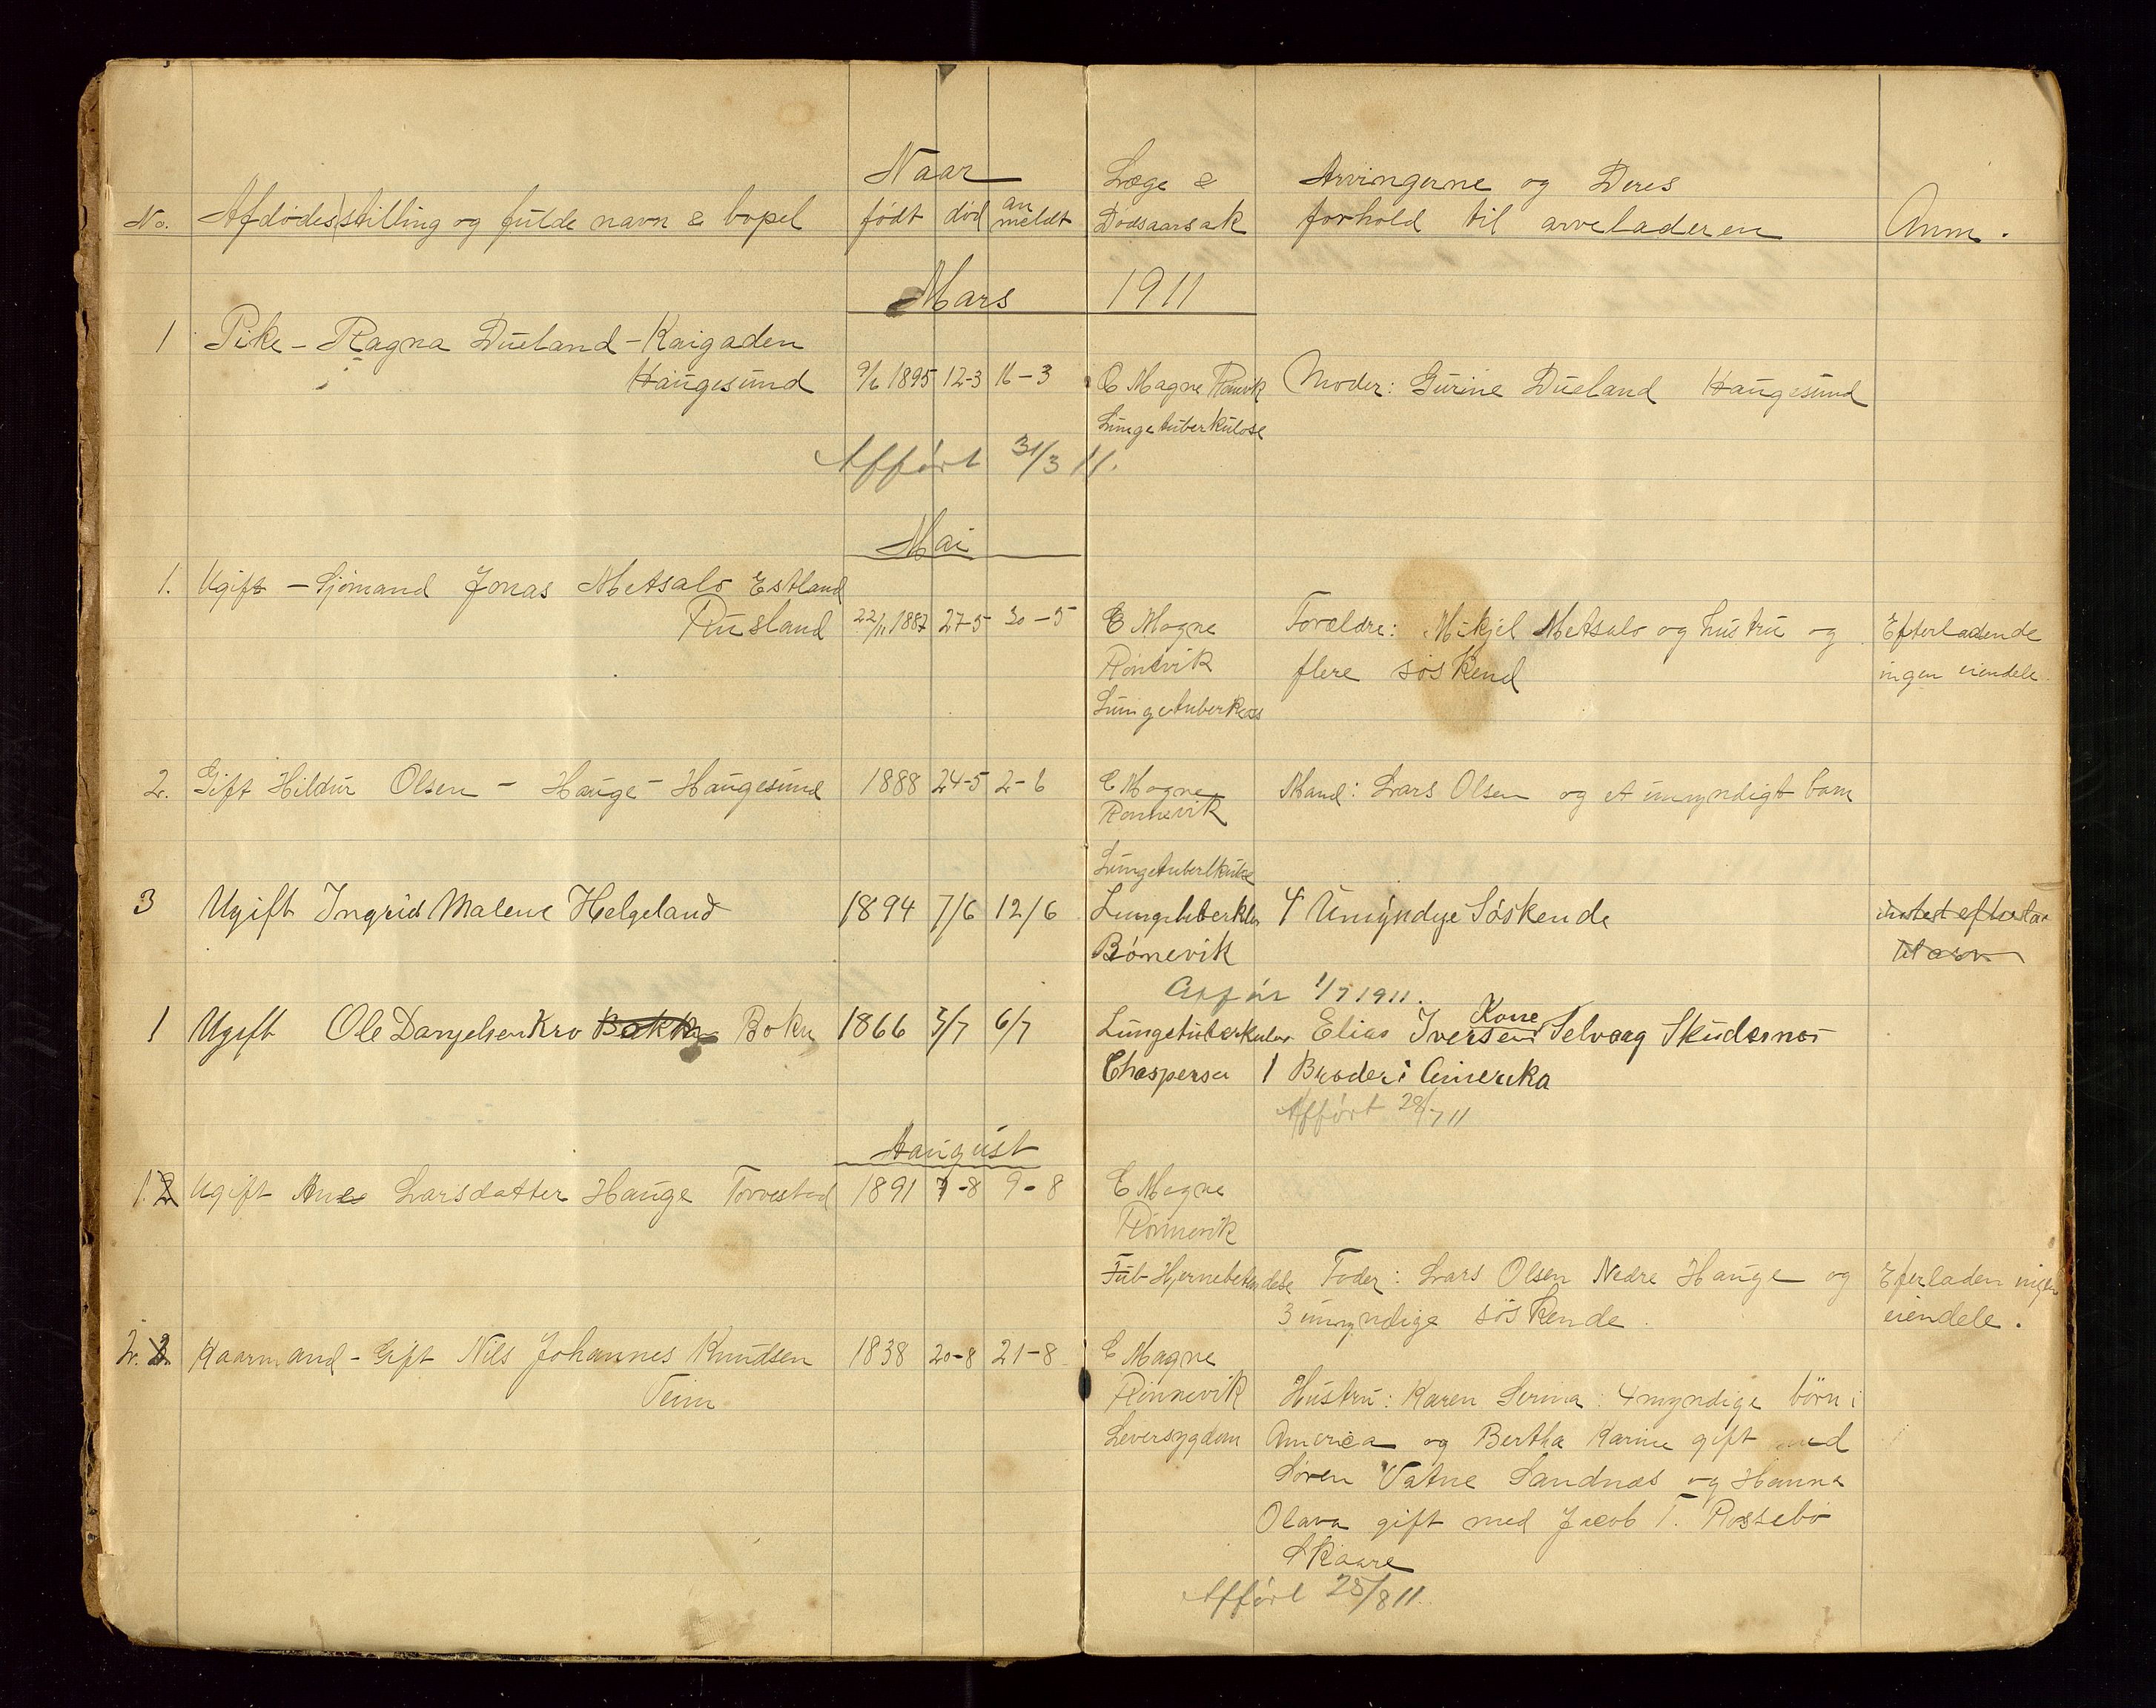 Naar
No. Afdødes stilling og fulde navn & bopel født død an meldt Læge & Dødsaarsak Arvingerne og Deres forhold til arveladeren Anm.
Mars 1911
1 Pike - Ragna Dueland - Kaigaden
Haugesund 9/6 1895 12-3 16-3 E Magne Rønvik Moder: Gurine Dueland Haugesund
Lungetuberkulose
Afført 31/3 11.
Mai
1. Ugift - Sjömand Jonas Metsalo Estland
Rusland 22/11 1887 27-5 30-5 E Magne Forældre: Mikjel Metsalo og hustru og Efterladende
Röntvik flere söskend ingen eiendele
Lungetuberkoss
2. Gift Hildur Olsen - Hauge - Haugesund 1888 24-5 2-6 E Magne Mand: Lars Olsen og et umyndigt barn
Rönnevik
Lungetuberlkulose
3 Ugift Ingrid Malene Helgeland 1894 7/6 12/6 Lungetuberklos 4 Umyndige Söskende
Rönevik
Afför 1/7 1911.
1 Ugift Ole Danjelsen Kro Bokn Bokn 1866 3/7 6/7 Lungetuberkulos Elias Iversen Kone Selvaag Skudesnæs
1 Broder i Amerika
Afført 28/7 11
Aaugust
1. 2 Ugift Ane Larsdatter Hauge Torvestad 1891 7-8 9-8 E Magne
Rönnevik
Tub-Hjernebetendelse Fader: Lars Olsen Nedre Hauge og Eferladen ingen
3 umyndige söskende. eiendele.
2. 3. Kaarmand - Gift Nils Johannes Knudsen 1838 20-8 21-8 E Magne
Veim Rönnevik Hustru: Karen Serina: 4 myndige börn i
Leversygdom America og Bertha Karine gift med
Sören Vatne Sandnæs og Hanna
Olava gift med Jacob T. Rossebö
Skaare
Afført 25/8 11.